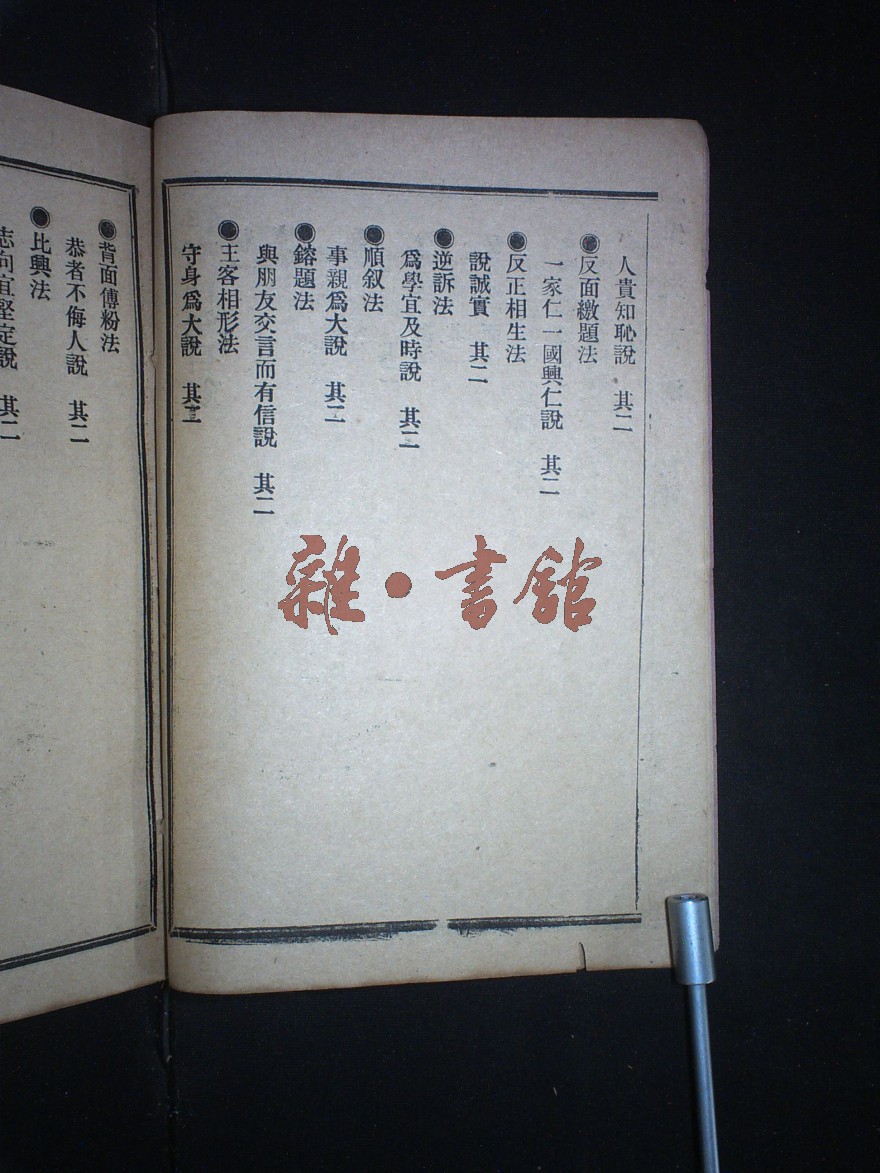 人貴知恥說　其二
◉反面繳題法
一家仁一國興仁說　其二
◉反正相生法
說誠實　其二
◉逆訴法
爲學宜及時說　其二
◉順叙法
事親爲大說　其二
◉鎔題法
與朋友交言而有信說　其二
◉主客相形法
守身爲大說　其二
◉背面傅粉法
恭者不侮人說　其二
◉比興法
志向宜堅定說　其二
雜•書館